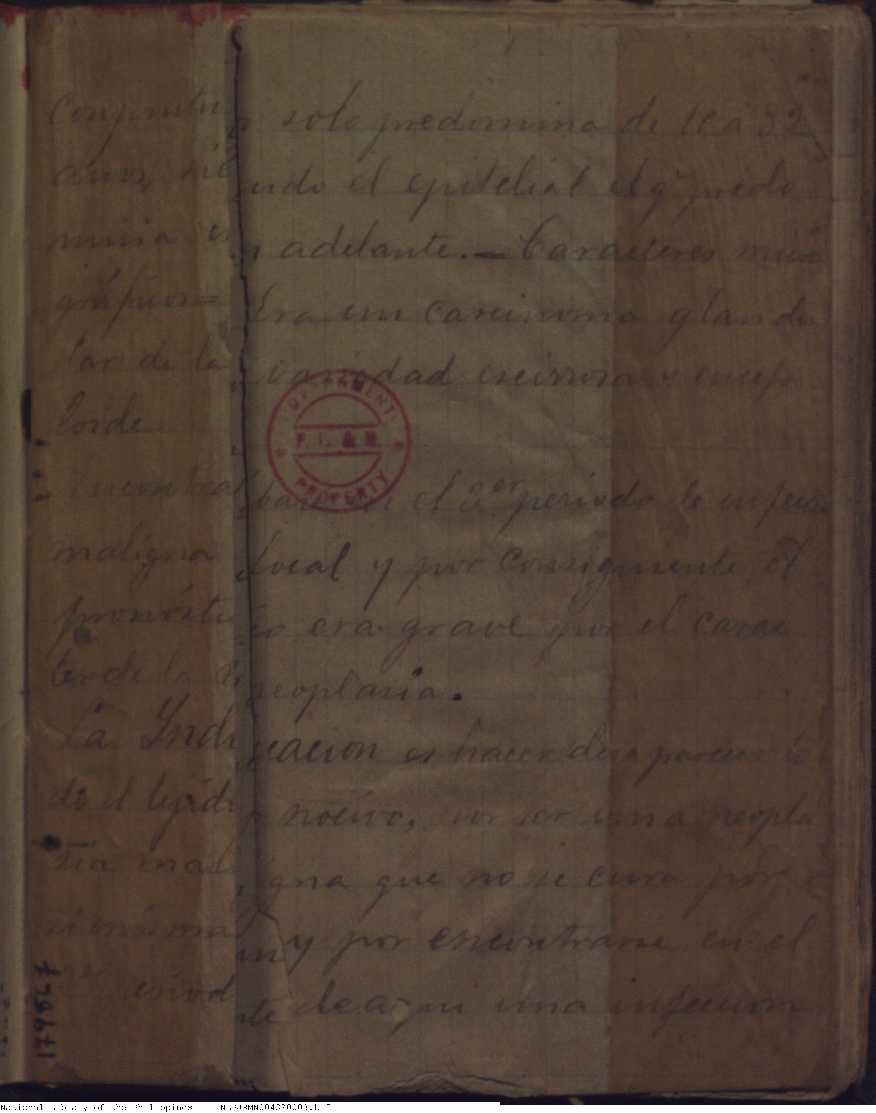 solo predomina de 10 a 32
años, siendo el epitelial el q. predo
mina en adelante. — Caracteres micro
gráficos = Era un carcinoma glandu
lar de la variedad escirrosa y encefa
loide
en el periodo de infeccion
maligna local y por consiguiente el
pronóstico era grave por el carac
ter de la neoplasia.
La Indicacion es hacer desaparecer to
do el tejido nocivo, por ser una neopla
sia maligna que no se cura por
si misma y por encontrarse en el
de aqui una infeccion
DEPARTMENT
P. L. & M.
PROPERTY
179867
National Library of the Philippines